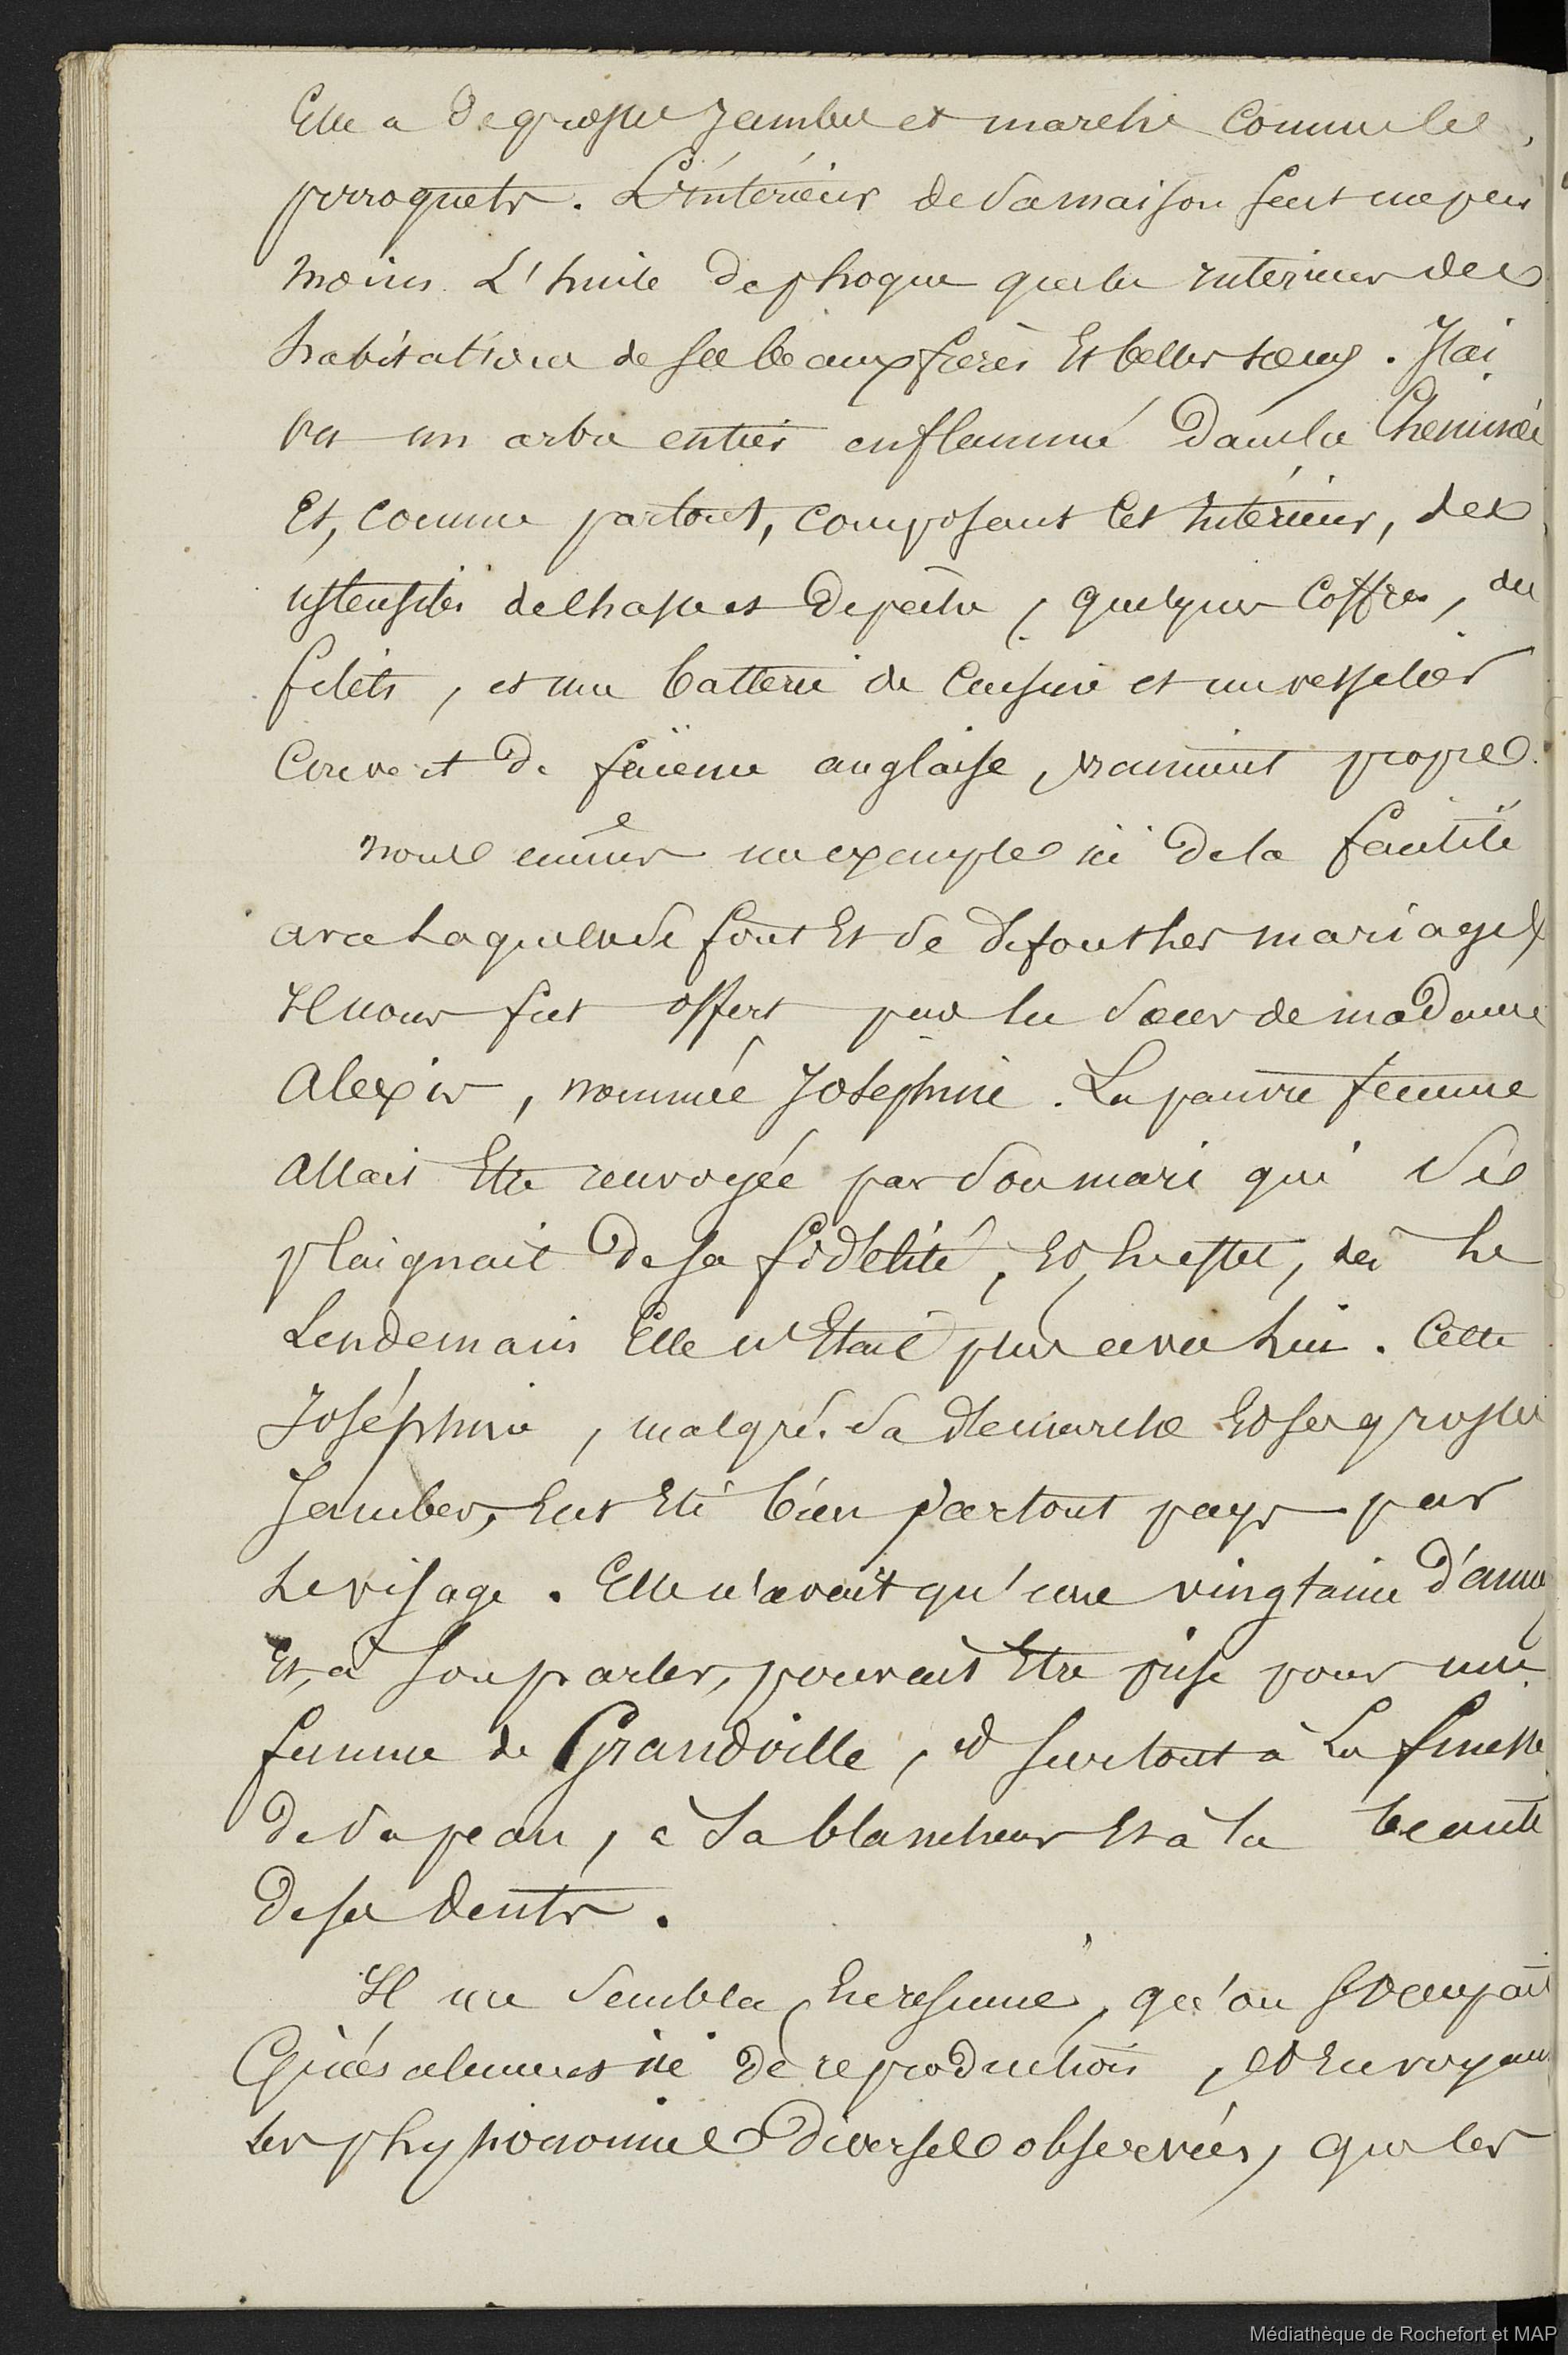 Elle a de grosses jambes et marche comme les
perroquets. L'intérieur de sa maison sent un peu
moins l'huile de phoque que les intérieurs des
habitations de ses beaux frères et belles sœurs. J'ai
vu un arbre entier enflammé dans la cheminée
Et, comme partout, composant cet intérieur, des
ustensiles de chasse et de pêche, quelques coffres, des
filets, et une batterie de cuisine et un vesselier
couvert de faïence anglaise, vraiment propres.
Nous eûmes un exemple ici de la facilité
avec laquelle se font et se défont les mariages
Il nous fut offert par la sœur de madame
Alexis, nommée Joséphine. La pauvre femme
allait être renvoyée par son mari qui se
plaignait de sa fidélité, et en effet, dès le
lendemain elle n'était plus avec lui. Cette
Joséphine, malgré sa démarche et ses grosses
jambes, eut été bien partout pays par
le visage. Elle n'avait qu'une vingtaine d'années
Et, à son parler, pouvait être prise pour une
femme de Grandville, et surtout à la finesse
de sa peau, à sa blancheur et à la beauté
de ses dents.
Il me sembla, en résumé, qu'on s'occupait
ici de reproduction, et en voyant
les physionomies diverses observées, que les
Médiathèque de Rochefort et MAP